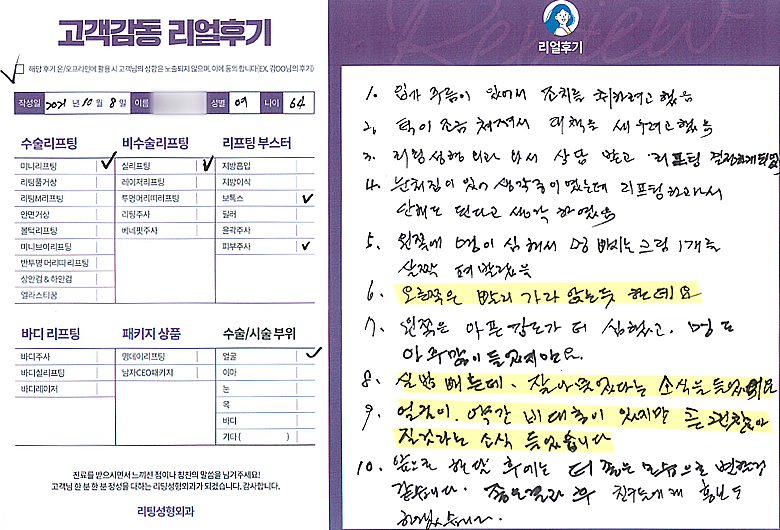 고객감동 리얼후기
해당 후기 온/오프라인에 활용 시 고객님의 성함은 노출되지 않으며, 이에 동의 합니다(EX. 김OO님의 후기)
작성일 2021년 10월 8일 이름 성별 여 나이 64
수술리프팅
미니리프팅
리팅풀거상
리팅M리프팅
안면거상
볼턱리프팅
미니브이리프팅
반투명 머리띠 리프팅
상안검 & 하안검
엘라스티꿈
비수술리프팅
실리프팅
레이저리프팅
투명머리띠리프팅
리팅주사
베네핏주사
리프팅 부스터
지방흡입
지방이식
보톡스
필러
윤곽주사
피부주사
바디 리프팅
바디주사
바디실리프팅
바디레이저
패키지 상품
명데이리프팅
남자CEO패키지
수술/시술 부위
얼굴
이마
눈
목
바디
기타 ( )
진료를 받으시면서 느끼신 점이나 칭찬의 말씀을 남겨주세요!
고객님 한 분 한 분 정성을 다하는 리팅성형외과가 되겠습니다. 감사합니다.
리팅성형외과
리얼후기
1. 입가 주름이 있어서 조치를 취하려고 했음
2. 턱이 조금 쳐져서 대책을 세우려고했음
3. 리팅성형외과 와서 상담 받고 리프팅 결정하게되었
4. 눈처짐이 있어 생각중이었는데 리프팅하고나서
안해도 된다고 생각 하였음
5. 왼쪽에 멍이 심해서 멍 빠지는 크림 1개를
살짝 펴 발랐음
6. 오른쪽은 빨리 가라 앉는듯 한데요
7. 왼쪽은 아픈 강도가 더 심했고, 멍도
아주많이 들었지만요.
8. 실밥 빼는데, 잘 아물었다는 소식을 들었어요
9. 얼굴이, 약간 비대칭이 있지만 곧 괜찮아
질거라는 소식 들었습니다
10. 앞으로 한달 후에는 더 젊은 모습으로 변할것
같습니다. 좋은결과 후 친구들에게 홍보도
하겠습니다.